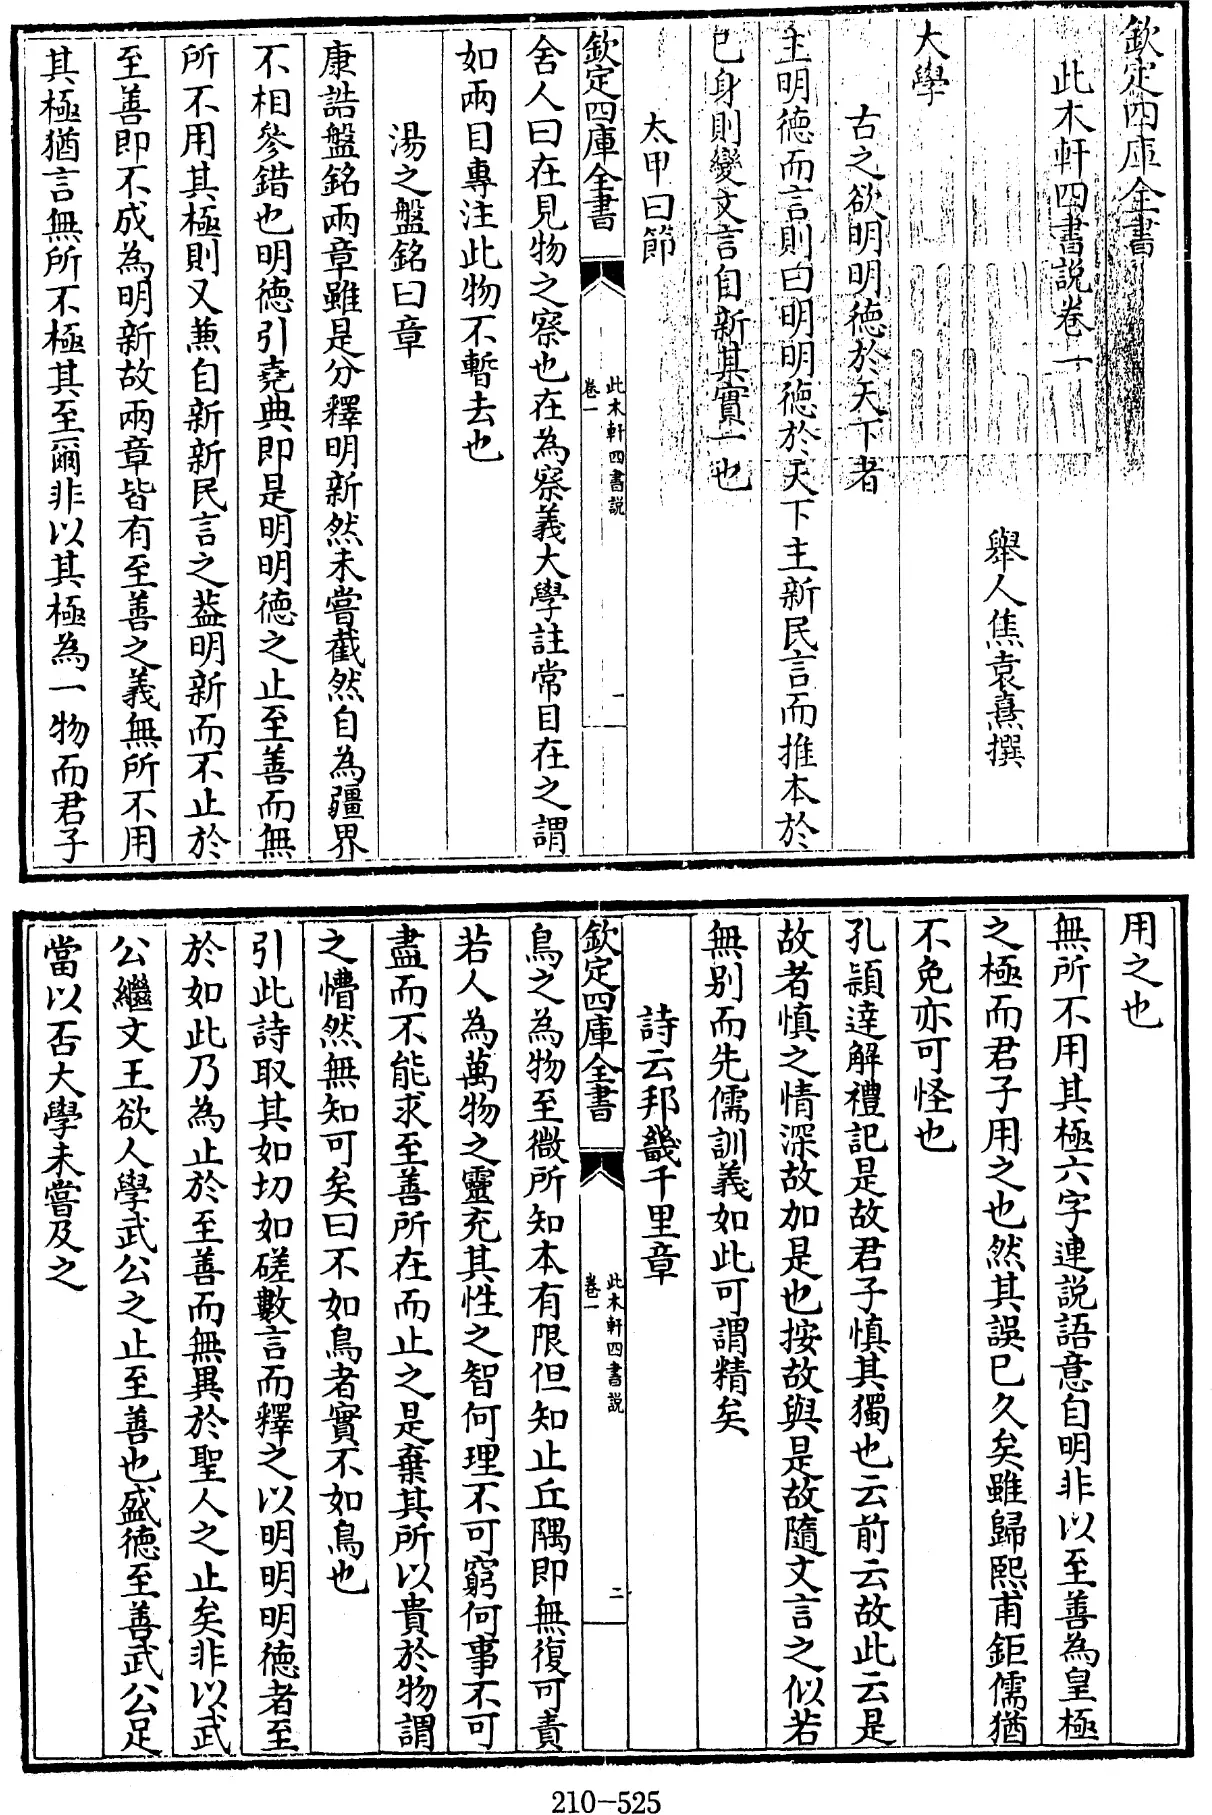 欽定四庫全書
此木軒四書說卷一
舉人焦袁熹撰
大學
古之欲明明德於天下者
主明德而言則曰明明德於天下主新民言而推本於
已身則變文言自新其實一也
太甲曰節
欽定四庫全書
此木軒四書說
卷一
一
舍人曰在見物之察也在為察義大學註常目在之謂
如兩目專注此物不暫去也
湯之盤銘曰章
康誥盤銘兩章雖是分釋明新然未嘗截然自為疆界
不相參錯也明德引堯典即是明明德之止至善而無
所不用其極則又兼自新新民言之葢明新而不止於
至善即不成為明新故兩章皆有至善之義無所不用
其極猶言無所不極其至爾非以其極為一物而君子
用之也
無所不用其極六字連說語意自明非以至善為皇極
之極而君子用之也然其誤已久矣雖歸熙甫鉅儒猶
不免亦可怪也
孔穎達解禮記是故君子慎其獨也云前云故此云是
故者慎之情深故加是也按故與是故隨文言之似若
無別而先儒訓義如此可謂精矣
詩云邦畿千里章
欽定四庫全書
此木軒四書說
卷一
二
鳥之為物至微所知本有限但知止丘隅即無復可責
若人為萬物之靈充其性之智何理不可窮何事不可
盡而不能求至善所在而止之是棄其所以貴於物謂
之懵然無知可矣曰不如鳥者實不如鳥也
引此詩取其如切如磋數言而釋之以明明明德者至
於如此乃為止於至善而無異於聖人之止矣非以武
公繼文王欲人學武公之止至善也盛德至善武公足
當以否大學未嘗及之
210-525